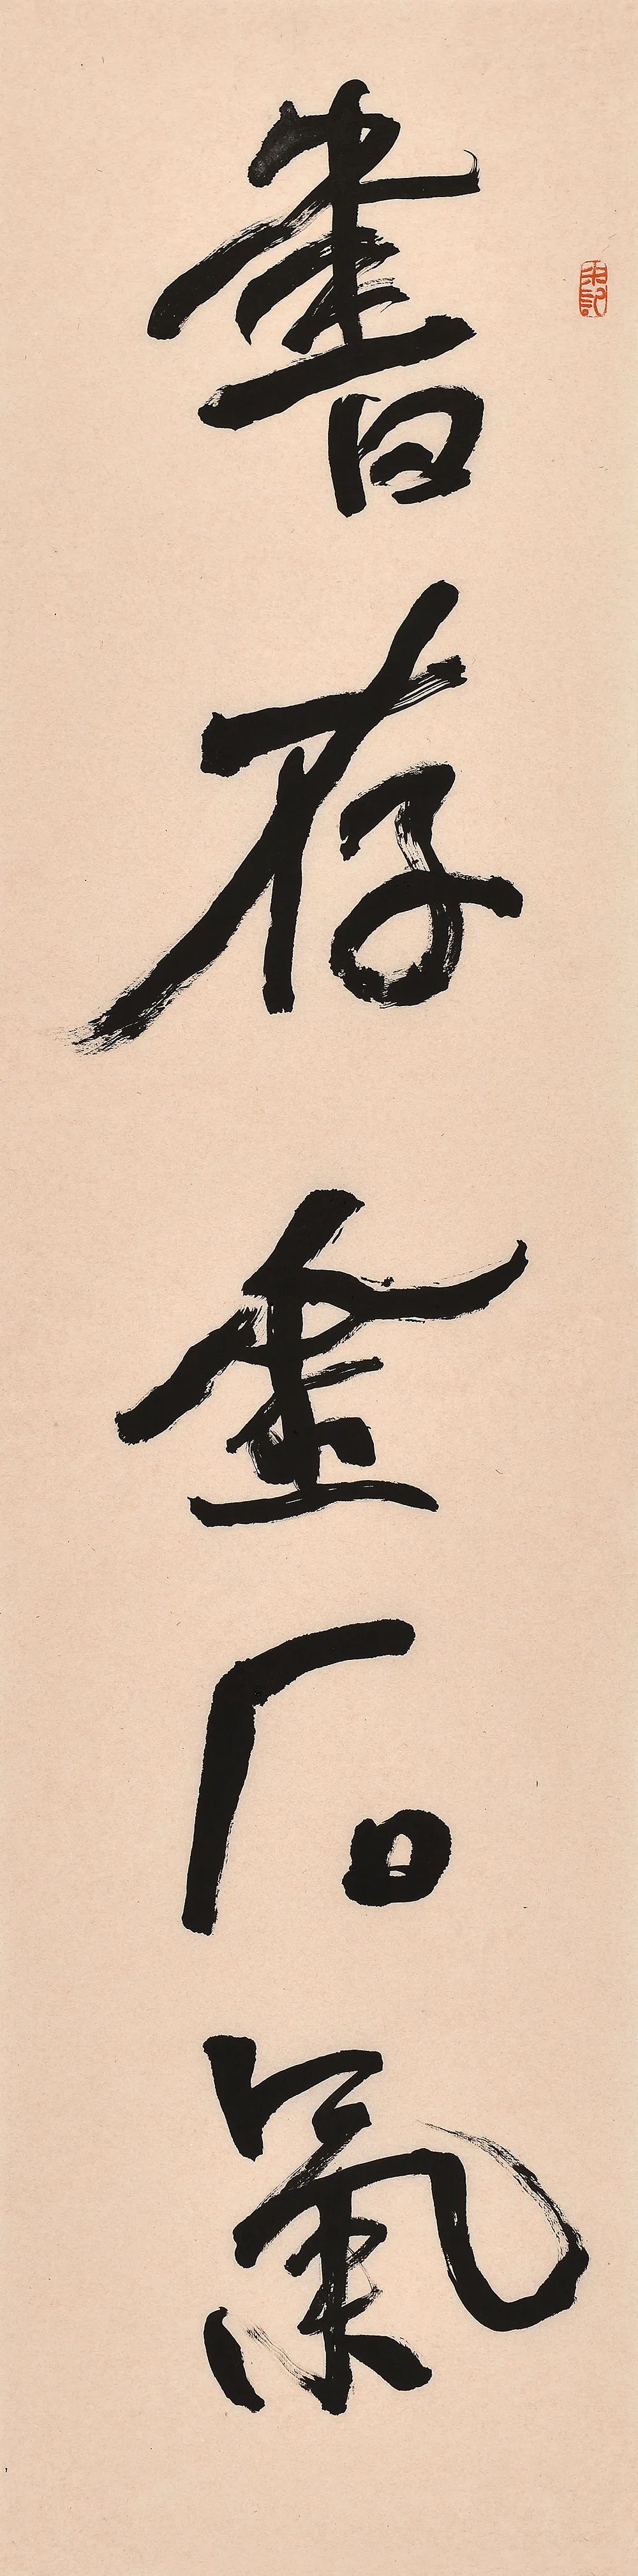 書存金石氣